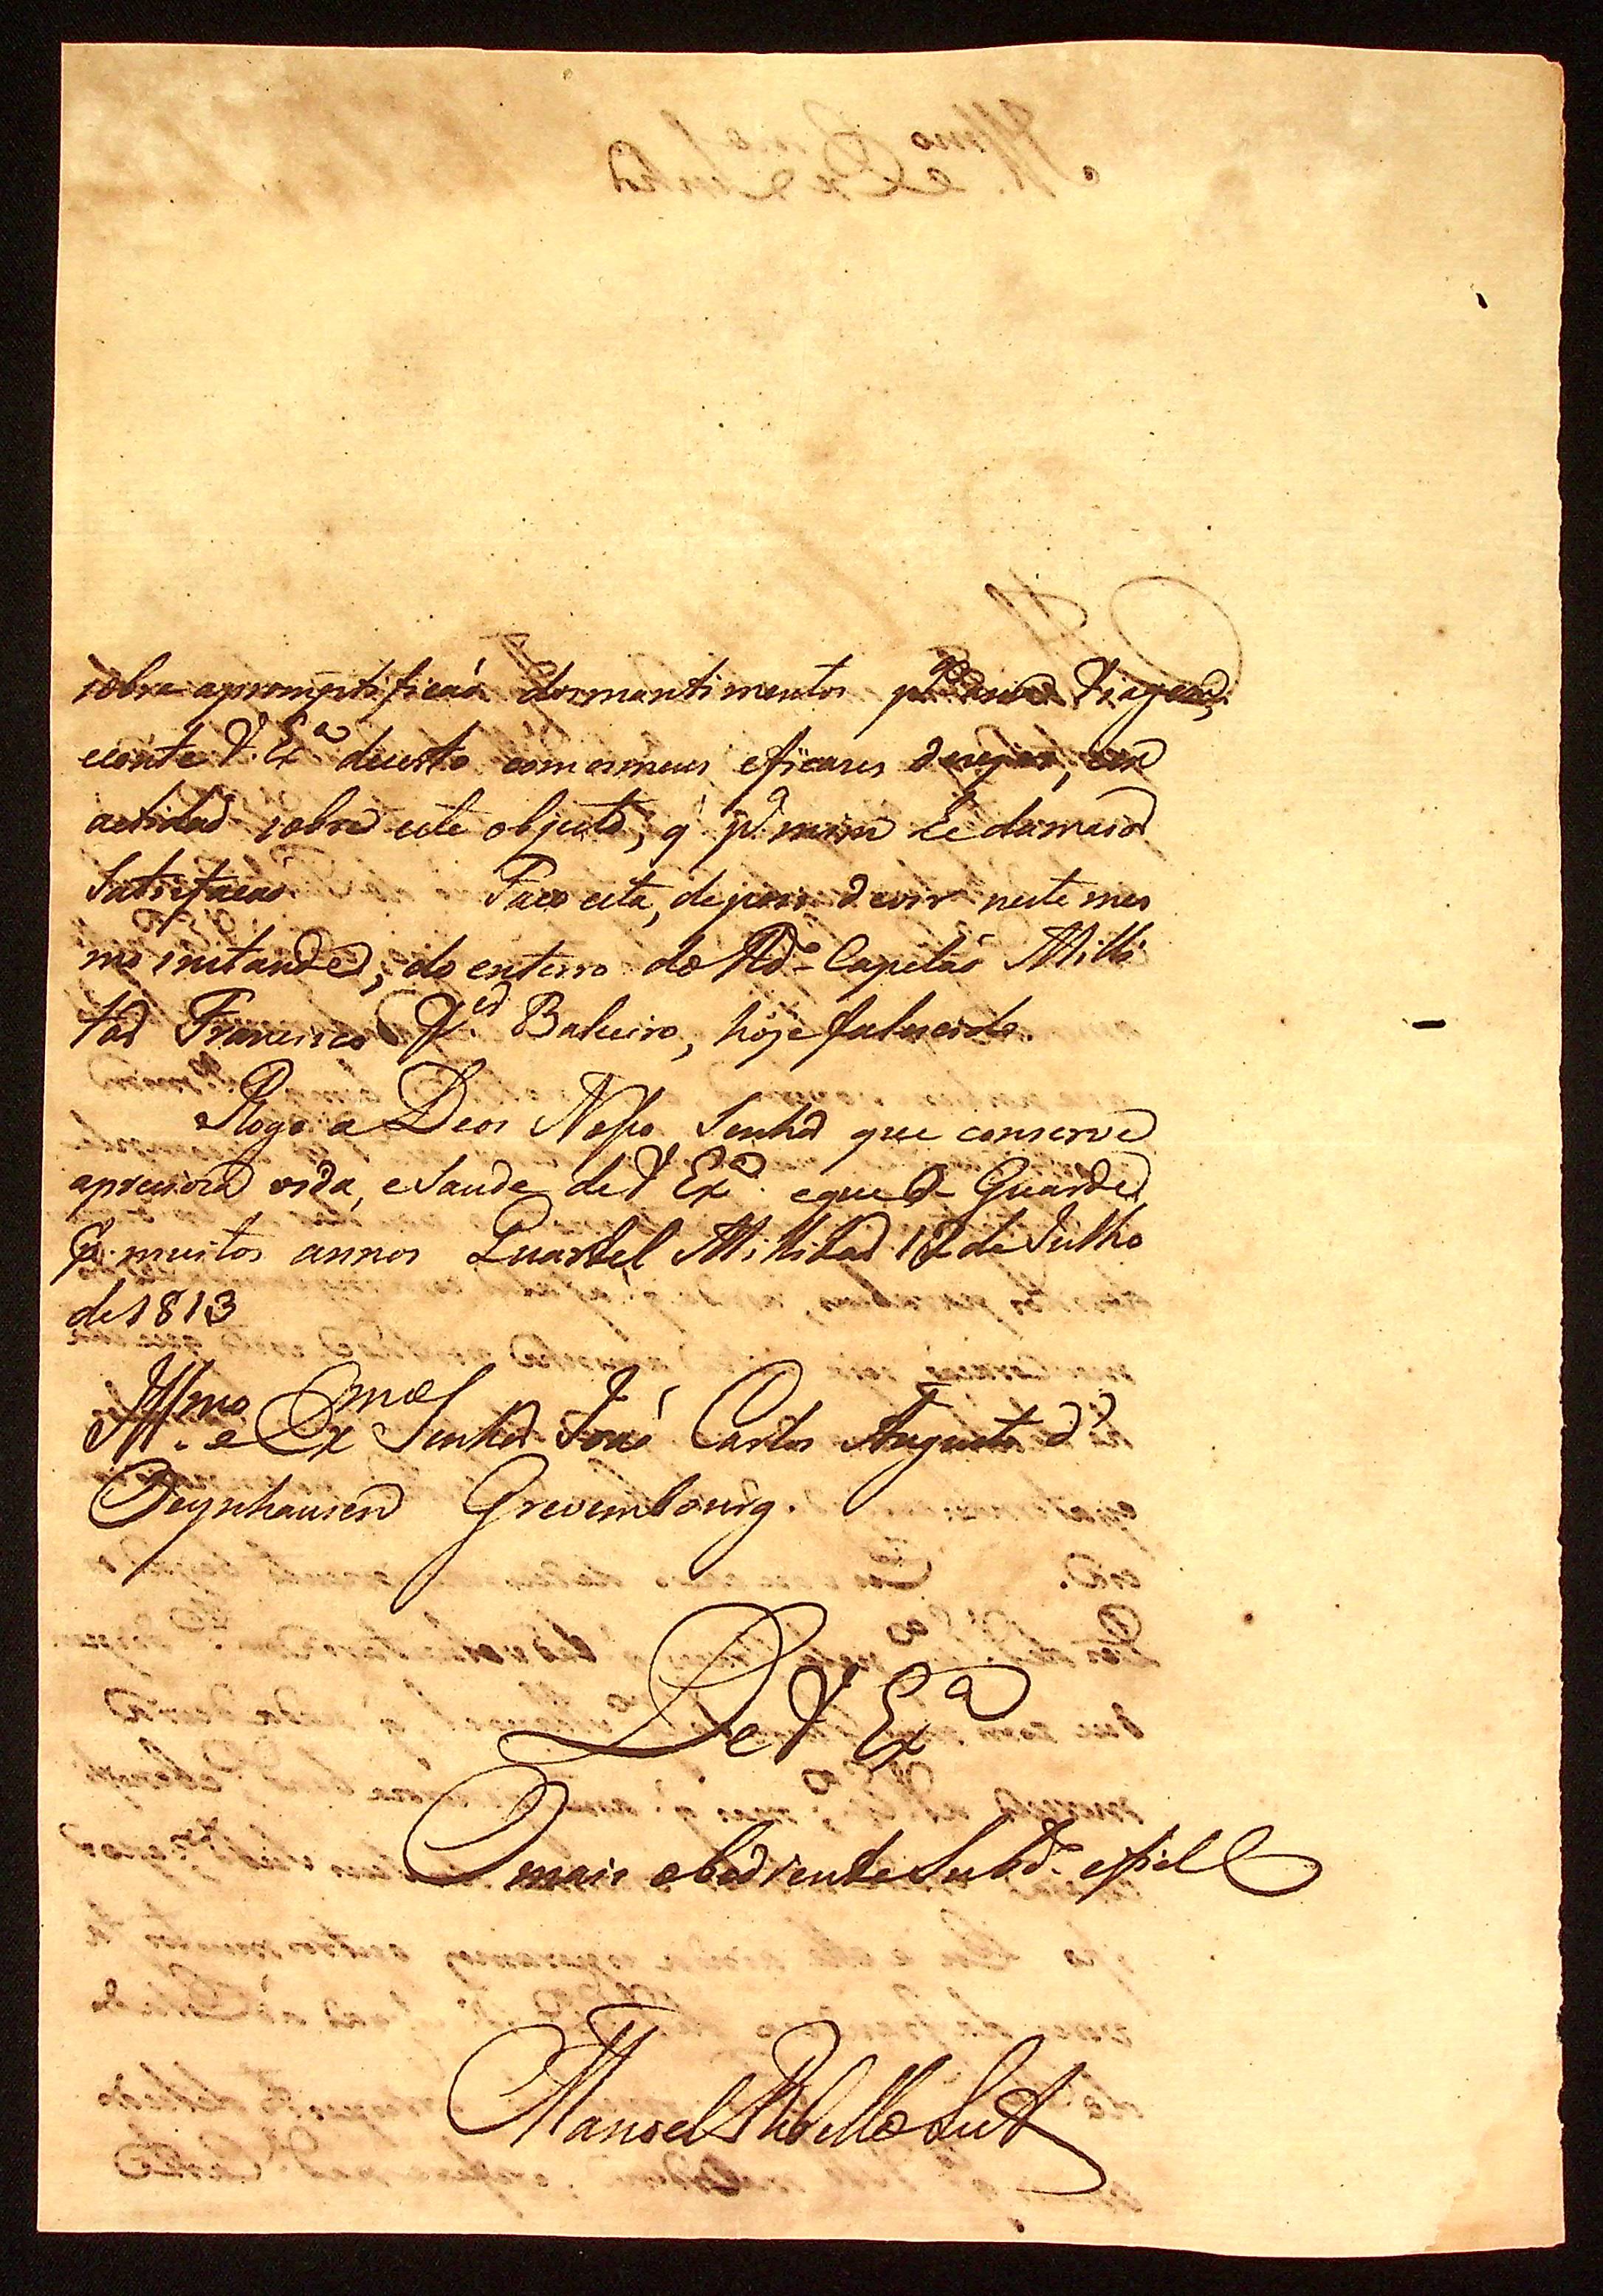 sobre apromptificaçaõ dosmantimentos pª Viagem,
econte V. Exª decerto comosmeus eficases dezejos, e
actividade sobre este objecto, q̃ pª mim hé damaior
Satisfaçaõ. Faço esta, depois de vir neste mes
mo instande, do enterro do Rdo Capelaõ Milli
tar Francisco Baleeiro, hoje falescido.
Rogo a Deos Nosso Senhor que conserve
apreciosa vida, e Saude de V Exª eque Guarde
pr muitos annos Quartel Millitar 12 de Julho
de 1813
Illmo e Exmo Senhor José Carlos Augusto d'
Oeynhausen Grevembourg.
De V Exª
O mais obediente Subdº efiel
Manoel Rebello